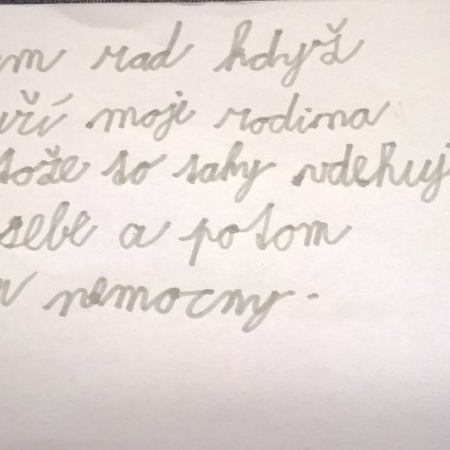 em rad když
uří moje rodina
tože to taky vdehuj
sebe a potom
nemocny.